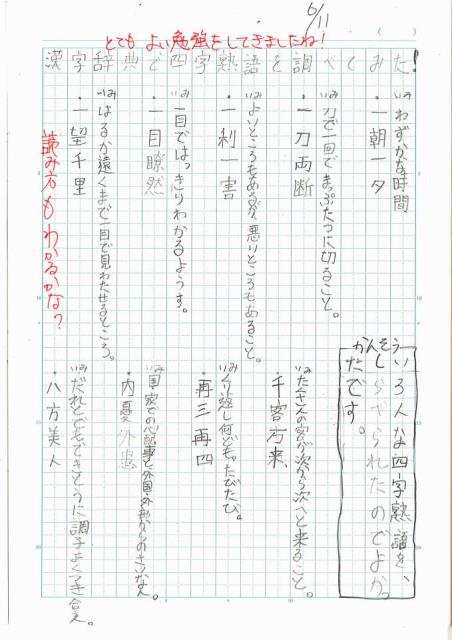 6/11
とてもよい勉強をしてきましたね!
漢字辞典で四字熟語を調べてみた!
・一朝一夕
いみ わずかな時間
・一刀両断
いみ 刀で一回でまっぷたつに切ること。
・一利一害
いみ よいところもあるが、悪いところもあること。
・一目瞭然
いみ 一目ではっきりわかるようす。
・一望千里
いみ はるか遠くまで一目で見わたせるところ。
読み方もわかるかな?
かんそう
いろんな四字熟語を、
しらべられたのでよかっ
たです。
・千客万来、
いみ たくさんの客が次から次へと来ること。
・再三再四
いみ くり返し何ども。たびたび。
・内憂外患
いみ 国家での心配事と外国・外部からの
・八方美人
いみ だれとでもてきとうに調子よくつき合え。